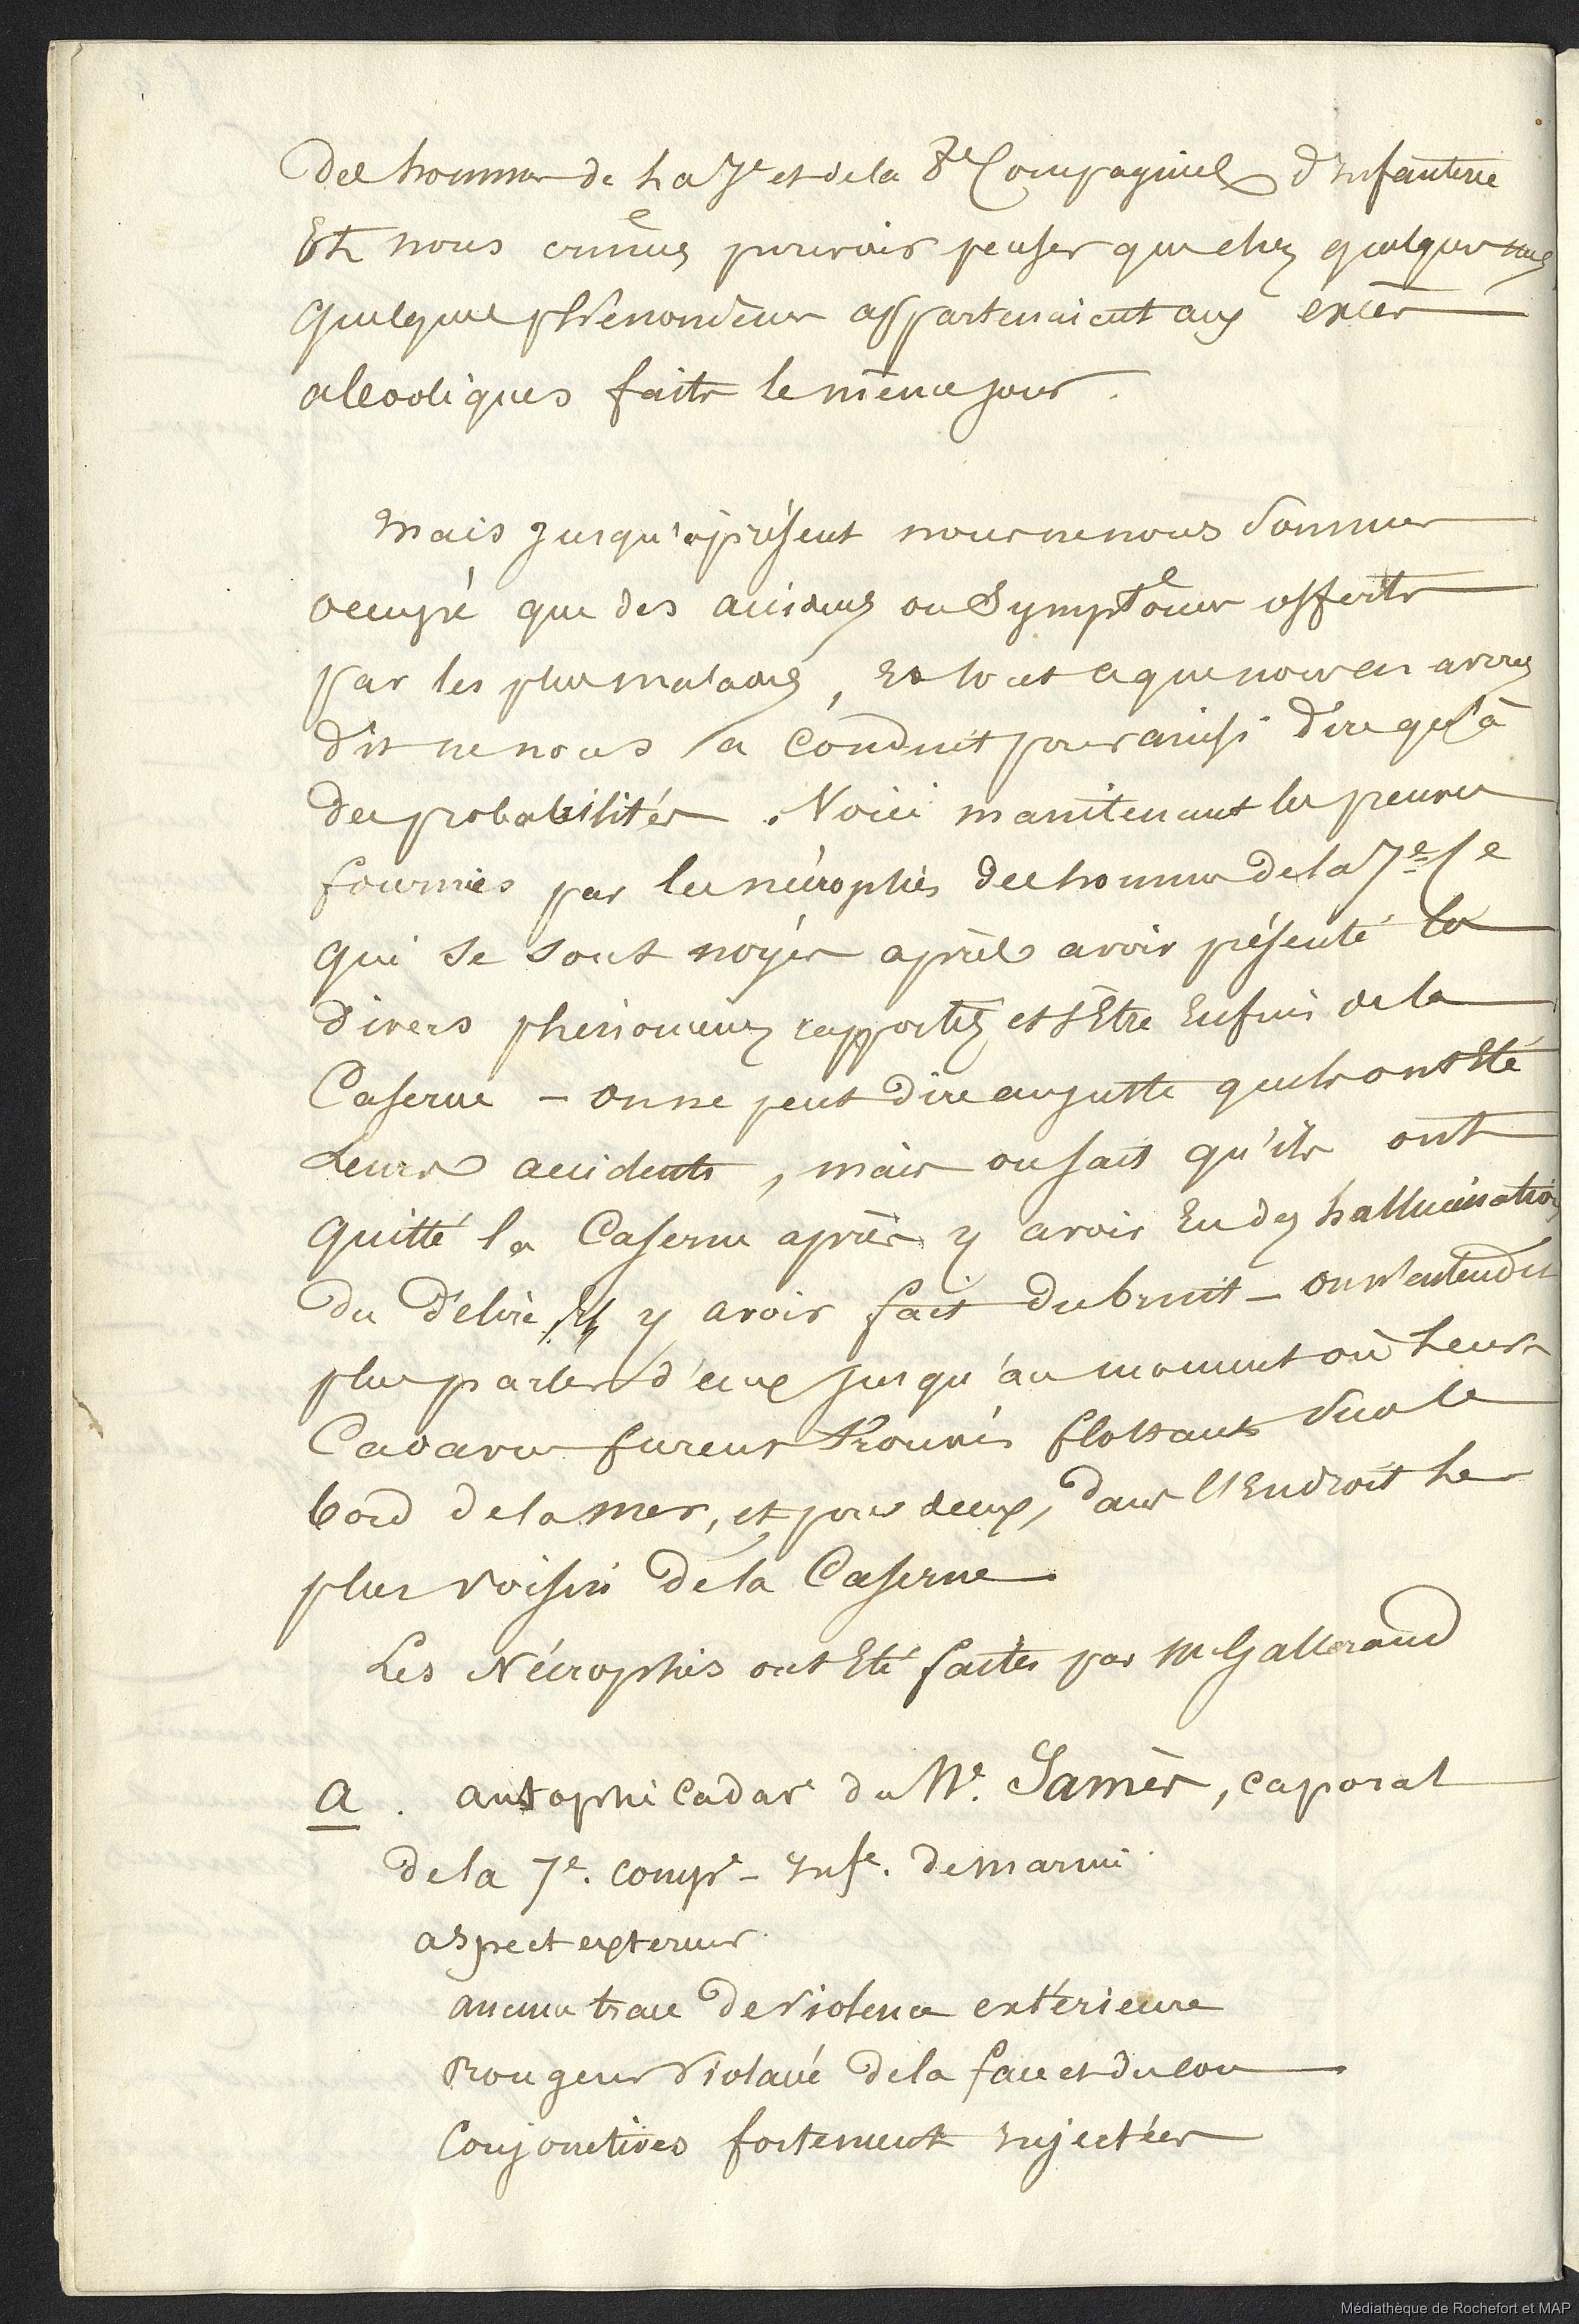 des hommes de la 7e et de la 8e Compagnies d'Infanterie
Et nous crûmes pouvoir penser que chez quelques uns
quelques phénomènes appartenaient aux excès
alcooliques faits le même jour.
Mais jusqu'à présent nous ne nous sommes
occupé que des accidens ou symptômes offerts
par les plus malades, Et tout ce que nous en avons
dit ne nous a conduit pour ainsi dire qu'à
des probabilités. Voici maintenant les preuves
fournies par les nécropsies des hommes de la 7e Cie
qui se sont noyés après avoir présenté les
divers phénomènes rapportés et s'être Enfuis de la
Caserne – on ne peut dire au juste quels ont Eté
leurs accidents, mais on sait qu'ils ont
quitté la Caserne après y avoir Eu des hallucinations
du délire Et y avoir fait du bruit – on n'entendit
plus parler d'eux jusqu'au moment où leurs
Cadavres furent trouvés flottants sur le
bord de la mer, et pour deux, dans l'Endroit le
plus voisin de la Caserne.
Les Nécropsies ont Eté faites par M Gallerand
a. autopsie cadave du Né. Samès, caporal
de la 7e. compe – Infe. de marine
aspect externe
aucune trace de violence extérieure
Rougeur violacée de la face et du cou
Conjonctives fortement injectées
Médiathèque de Rochefort et MAP